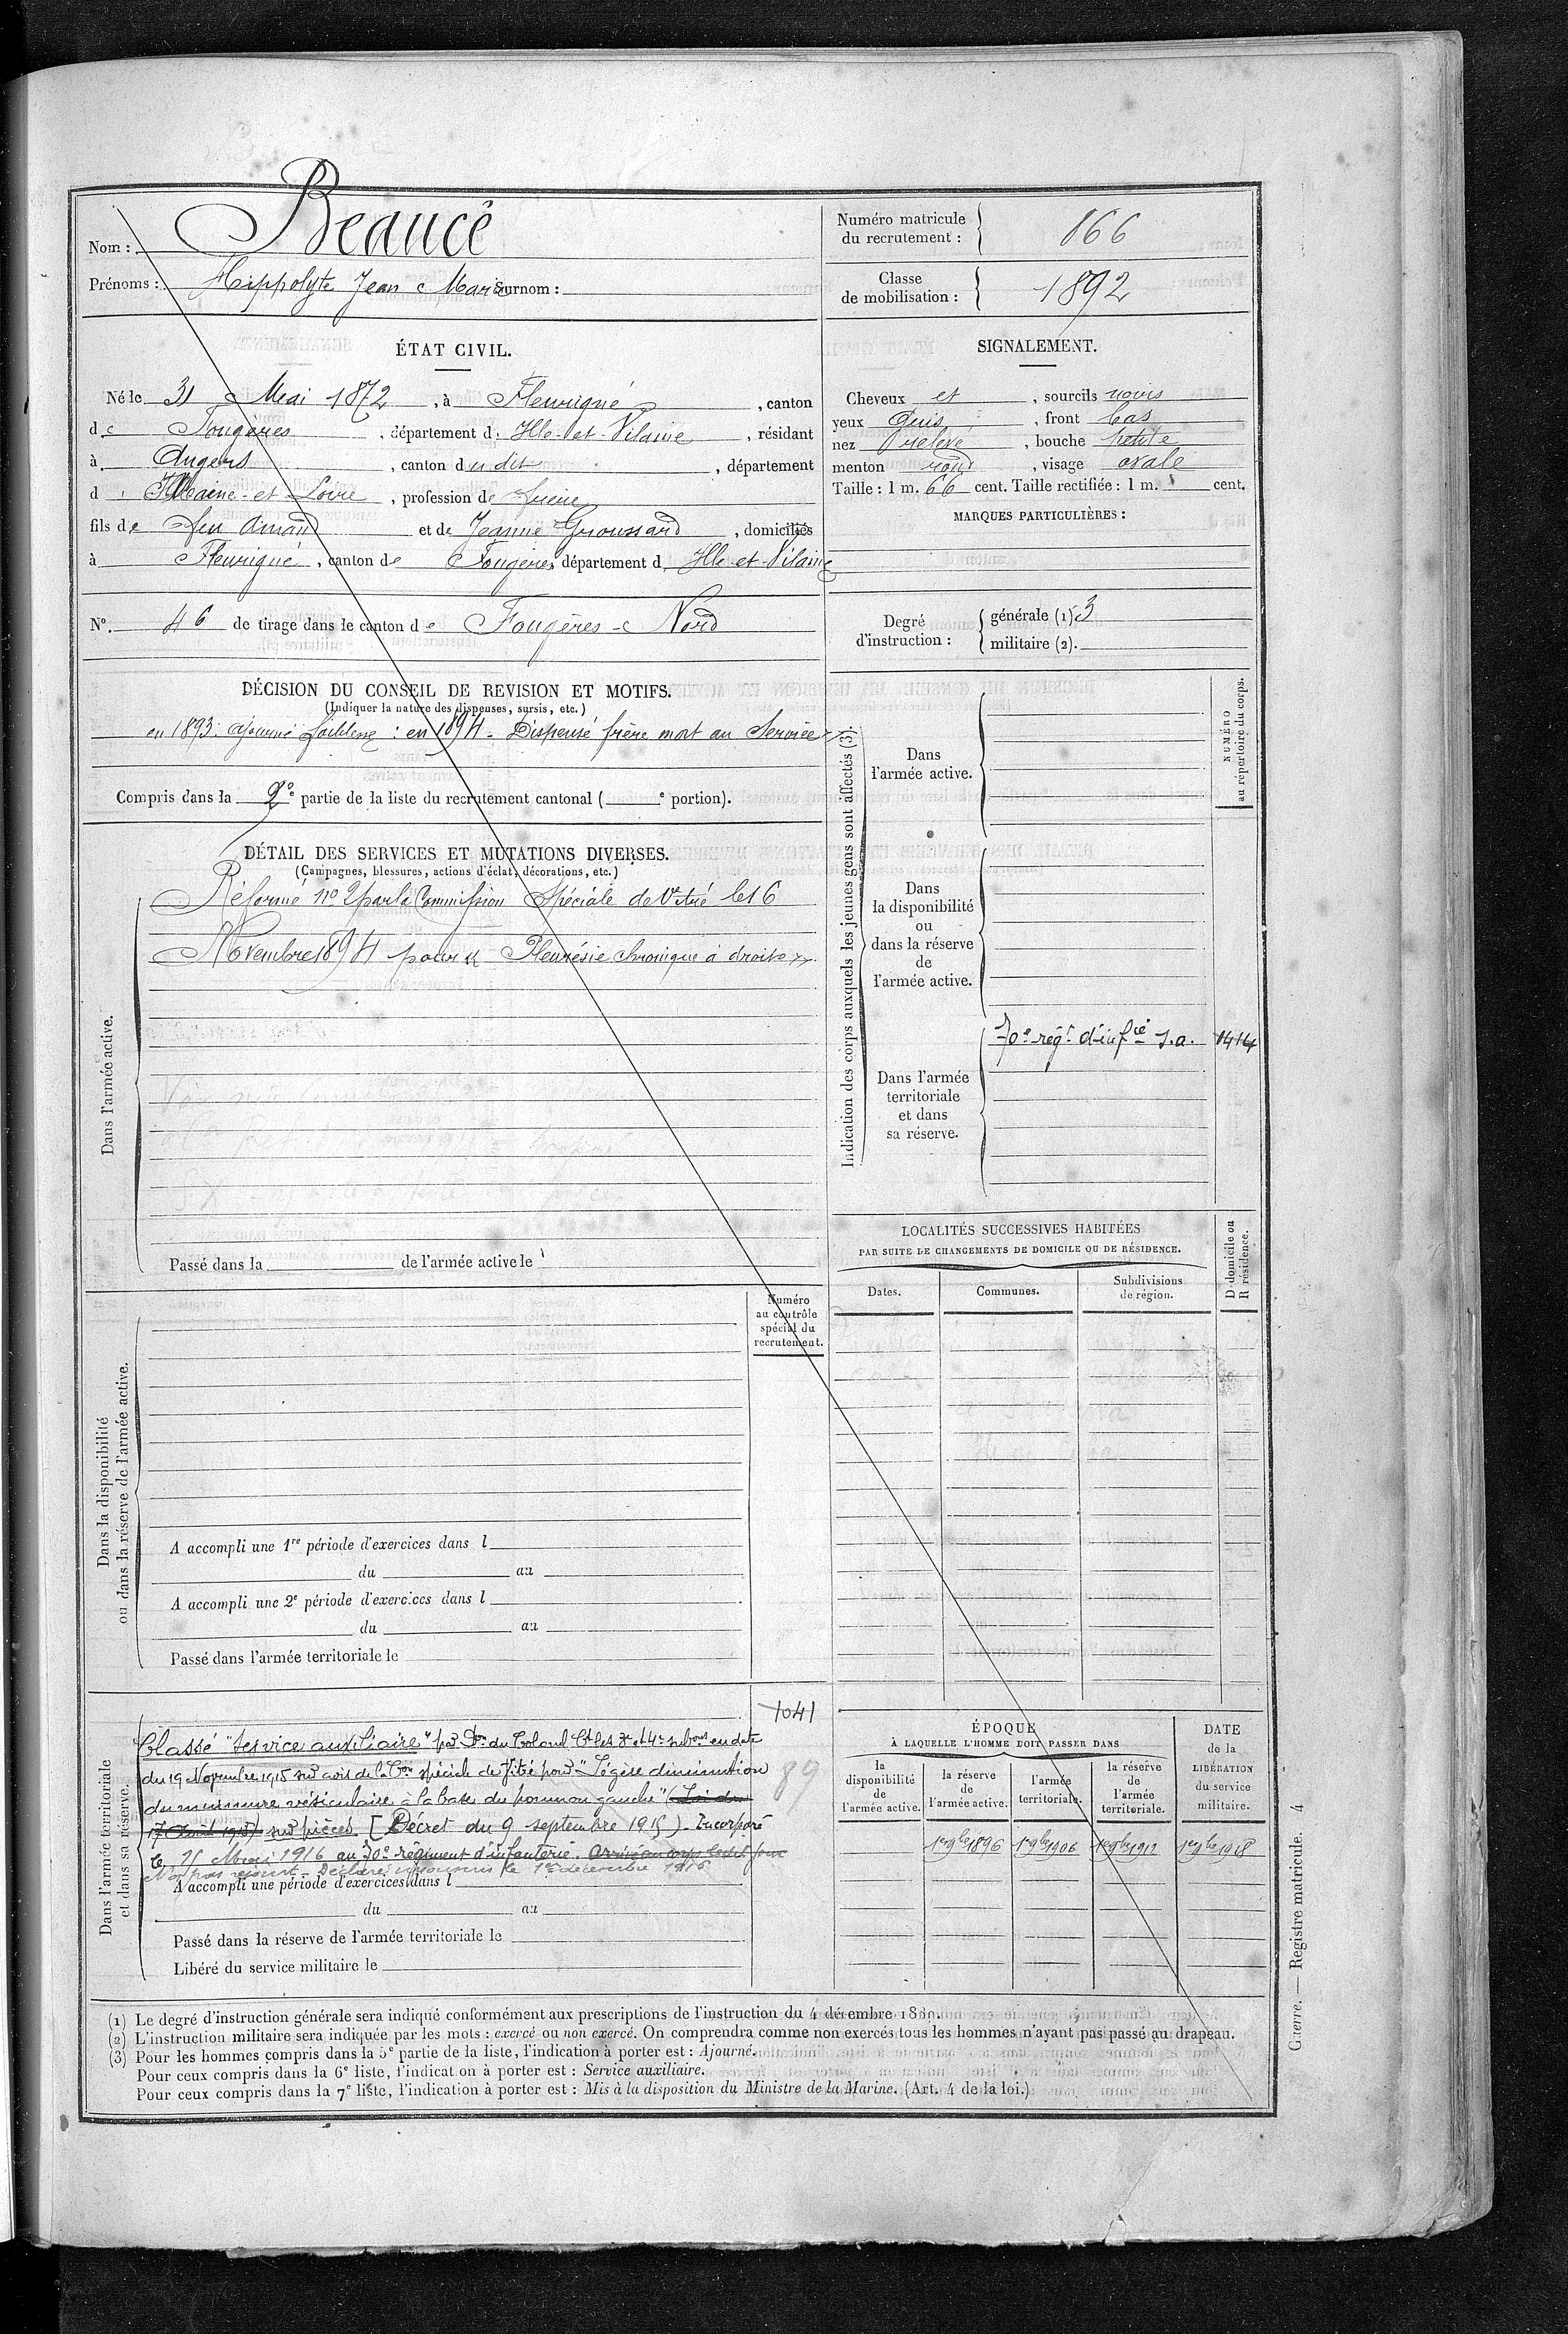 Nom : Beaucé
Prénoms : Hippolyte Jean Marie Surnom :
Numéro matricule du recrutement : 166
Classe de mobilisation : 1892
ÉTAT CIVIL.
Né le 31 Mai 1872, à Fleurigné, canton
de Fougères, département d'Ille-et-Vilaine, résidant
à Angers, canton dudit, département
d Maine-et-Loire, profession de
fils de feu Amand et de Jeanne Groussard, domiciliés
à Fleurigné, canton de Fougères, département d'Ille-et-Vilaine
N° 46 de tirage dans le canton de Fougères - Nord
SIGNALEMENT.
Cheveux et, sourcils noirs
yeux gris, front bas
nez relevé, bouche petite
menton rond, visage ovale
Taille : 1 m. 66 cent. Taille rectifiée : 1 m. cent.
MARQUES PARTICULIÈRES :
Degré d'instruction : générale (1) 3
militaire (2).
DÉCISION DU CONSEIL DE REVISION ET MOTIFS.
(Indiquer la nature des dispenses, sursis, etc.)
en 1893 : ajourné faiblesse : en 1894 - Dispensé frère mort au Service
Compris dans la 2e partie de la liste du recrutement cantonal ( e portion).
DÉTAIL DES SERVICES ET MUTATIONS DIVERSES.
(Campagnes, blessures, actions d'éclat, décorations, etc.)
Dans l'armée active.
Réformé no 2 par la Commission Spéciale de Vitré le 16
Novembre 1894 pour « Pleurésie chronique à droite ».
Passé dans la de l'armée active le
Indication des corps auxquels les jeunes gens sont affectés (3).
NUMÉRO au répertoire du corps.
Dans l'armée active.
Dans la disponibilité ou dans la réserve de l'armée active.
Dans l'armée territoriale et dans sa réserve.
70e régt d'infie s.a. 1414
LOCALITÉS SUCCESSIVES HABITÉES
PAR SUITE DE CHANGEMENTS DE DOMICILE OU DE RÉSIDENCE.
Dates.
Communes.
Subdivisions de région.
D domicile ou R résidence.
Dans la disponibilité ou dans la réserve de l'armée active.
Numéro au contrôle spécial du recrutement.
A accompli une 1re période d'exercices dans l
du au
A accompli une 2e période d'exercices dans l
du au
Passé dans l'armée territoriale le
Dans l'armée territoriale et dans sa réserve.
1041
89
Classé "Service auxiliaire" par Don du Colonel Ct les 3e et 4e subons en date
du 19 Novembre 1915 sur avis de la Con spéciale de Vitré pour "Légère diminution
du murmure vésiculaire à la base du poumon gauche" (Loi du
17 Août 1915) sur pièces [Décret du 9 septembre 1915) - Incorporé
le 25 Mai 1916 au 70e régiment d'infanterie. Arrivé au corps ledit jour
N'a pas rejoint - Déclaré insoumis le 1er décembre 1916
A accompli une période d'exercices dans l
du au
Passé dans la réserve de l'armée territoriale le
Libéré du service militaire le
ÉPOQUE
À LAQUELLE L'HOMME DOIT PASSER DANS
la disponibilité de l'armée active.
la réserve de l'armée active. 1er 9bre 1896
l'armée territoriale. 1er 9bre 1906
la réserve de l'armée territoriale. 1er 9bre 1912
DATE de la LIBÉRATION du service militaire. 1er 9bre 1918
(1) Le degré d'instruction générale sera indiqué conformément aux prescriptions de l'instruction du 4 décembre 1889.
(2) L'instruction militaire sera indiquée par les mots : exercé ou non exercé. On comprendra comme non exercés tous les hommes n'ayant pas passé au drapeau.
(3) Pour les hommes compris dans la 5e partie de la liste, l'indication à porter est : Ajourné.
Pour ceux compris dans la 6e liste, l'indication à porter est : Service auxiliaire.
Pour ceux compris dans la 7e liste, l'indication à porter est : Mis à la disposition du Ministre de la Marine. (Art. 4 de la loi.)
Guerre. — Registre matricule. 4